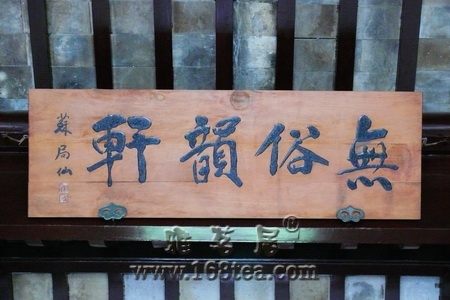 無俗韻軒
蘇局仙
雅茗居®
www.168tea.com